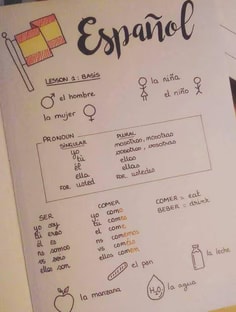 Español
LESSON 1: BASIS
el hombre
la niña
la mujer
el niño
PRONOUN
SINGULAR PLURAL
yo nosotros, nosotras
tú vosotros, vosotras
él ellos
ella ellas
FOR usted FOR ustedes
SER
yo soy
tú eres
él es
ns somos
vs sois
ellos son
COMER
yo como
tú comes
él come
ns comemos
vs coméis
ellos comen
COMER = eat
BEBER = drink
el pan
la leche
la manzana
H₂O
la agua